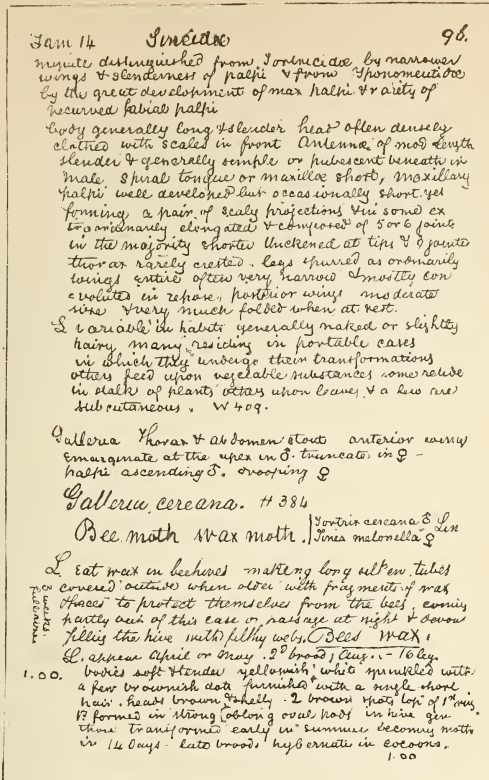 Fam 14 Tineidæ 96.
minute distinguished from Tortricidæ by narrower
wings & slenderness of palpi & from Yponomeutidæ
by the great development of max palpi & rarety of
recurved labial palpi
body generally long & slender head often densely
clothed with scales in front Antennæ of mod length
slender & generally semple or pubescent beneath in
male spiral tongue or maxillæ short, maxillary
palpi well developed but occasionally short yet
forming a pair of scaly projections & in some ex
traordinarily elongated & composed of 5 or 6 joints
in the majority shorter thickened at tips & 3 jointed
thorax rarely crested. legs spurred as ordinarily
wings entire often very narrow & mostly con
voluted in repose, posterior wings moderate
size & very much folded when at rest.
L variable in habits generally naked or slightly
hairy many residing in portable cases
in which they undergo their transformations
others feed upon vegetable substances some reside
in stalk of plants others upon leaves & a few are
subcutaneous. W 409.
Galleria Thorax & abdomen stout anterior wings
emarginate at the apex in ♂. truncate in ♀ -
palpi ascending ♂. drooping ♀
Galleria cereana. H 384
Bee moth wax moth. Tortrix cereana ♂ Lin
Tinea melonella ♀
L. eat wax in beehives making long silken tubes
covered outside when older with fragments of wax
& feces to protect themselves from the bees, coming
partly out of this case or passage at night & devour
filling the hive with filthy webs. Bees wax.
3 weeks.
full size
L. appear April or May. 2d brood, Aug. - 16 leg.
1.00. bodies soft & tender yellowish white sprinkled with
a few brownish dots furnished with a single short
hair. heads brown & shelly - 2 brown spots top of 1st ring
P formed in strong oblong oval pods in hive gen
those transformed early in summer becoming moths
in 14 days - late broods hybernate in cocoons.
1.00